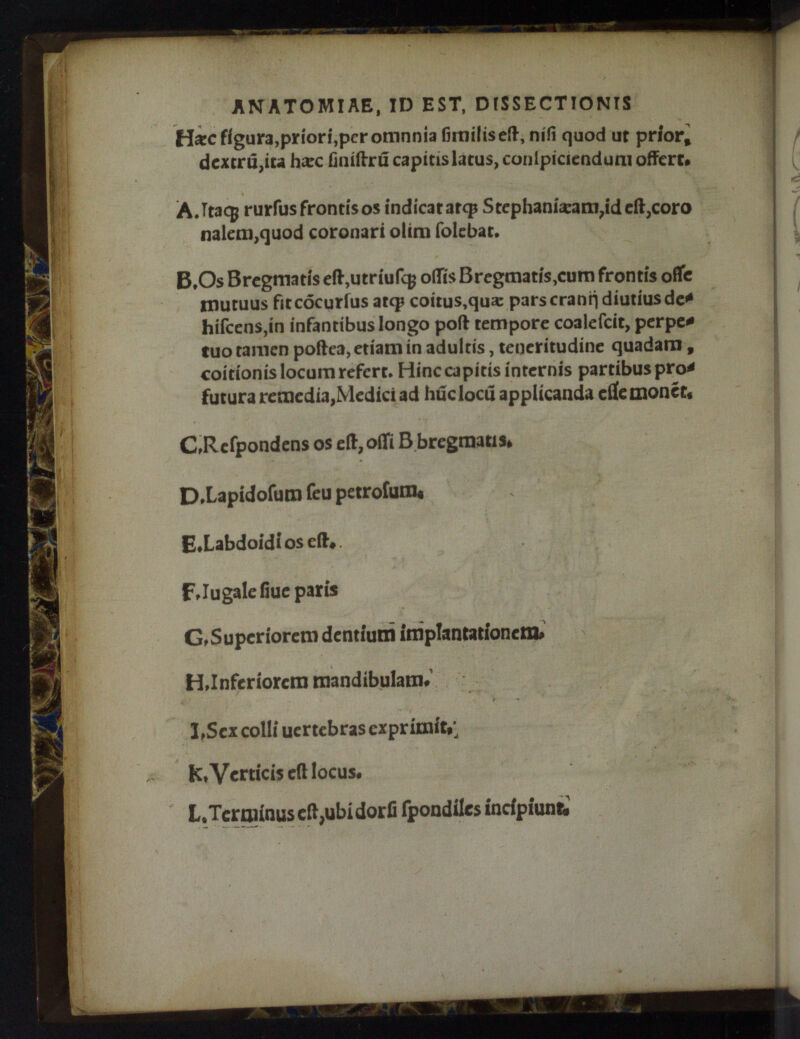 ANATOMIAE, ID EST, DISSECTIONIS
Hæc figura,priori,per omnnia ſimilis eſt, niſi quod ut prior,
dextrũ,ita hæc ſiniſtrũ capitis latus, conſpiciendum offert.
A.Itaqꝫ rurſus frontis os indicat atqꝫ Stephaniæam,id eſt,coro
nalem,quod coronari olim ſolebat.
B.Os Bregmatis eſt,utriuſqꝫ oſſis Bregmatis,cum frontis oſſe
mutuus fit cõcurſus atqꝫ coitus,quæ pars cranij diutius de-
hiſcens,in infantibus longo poſt tempore coaleſcit, perpe-
tuo tamen poſtea, etiam in adultis, teneritudine quadam,
coitionis locum refert. Hinc capitis internis partibus pro-
futura remedia,Medici ad hũc locũ applicanda eſſe monẽt.
C.Reſpondens os eſt, oſſi B bregmatis.
D.Lapidoſum ſeu petroſum.
E.Labdoidi os eſt.
F.Iugale ſiue paris
G.Superiorem dentium implantationem.
H.Inferiorem mandibulam.
I.Sex colli uertebras exprimit.
K.Verticis eſt locus.
L.Terminus eſt,ubi dorſi ſpondiles incipiunt.